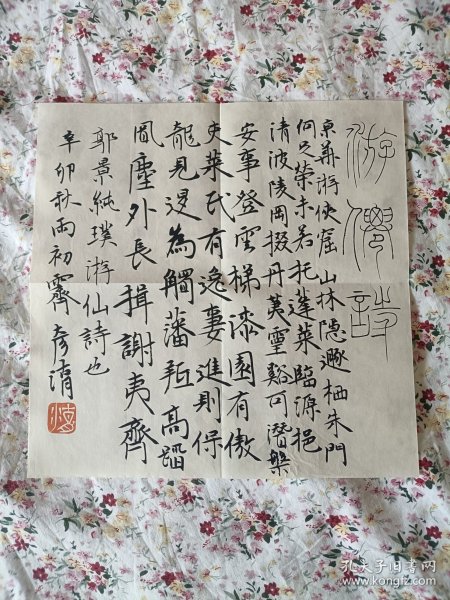 游僊詩
京華游俠窟山林隱遯栖朱門
何足榮未若托蓬萊臨源挹
清波陵岡掇丹荑靈谿可潛槃
安事登雲梯漆園有傲
吏萊氏有逸妻進則保
龍見退為觸藩羝高蹈
風塵外長揖謝夷齊
郭景純璞游仙詩也
辛卯秋雨初霽
孔夫子旧书网
www.kongfz.com